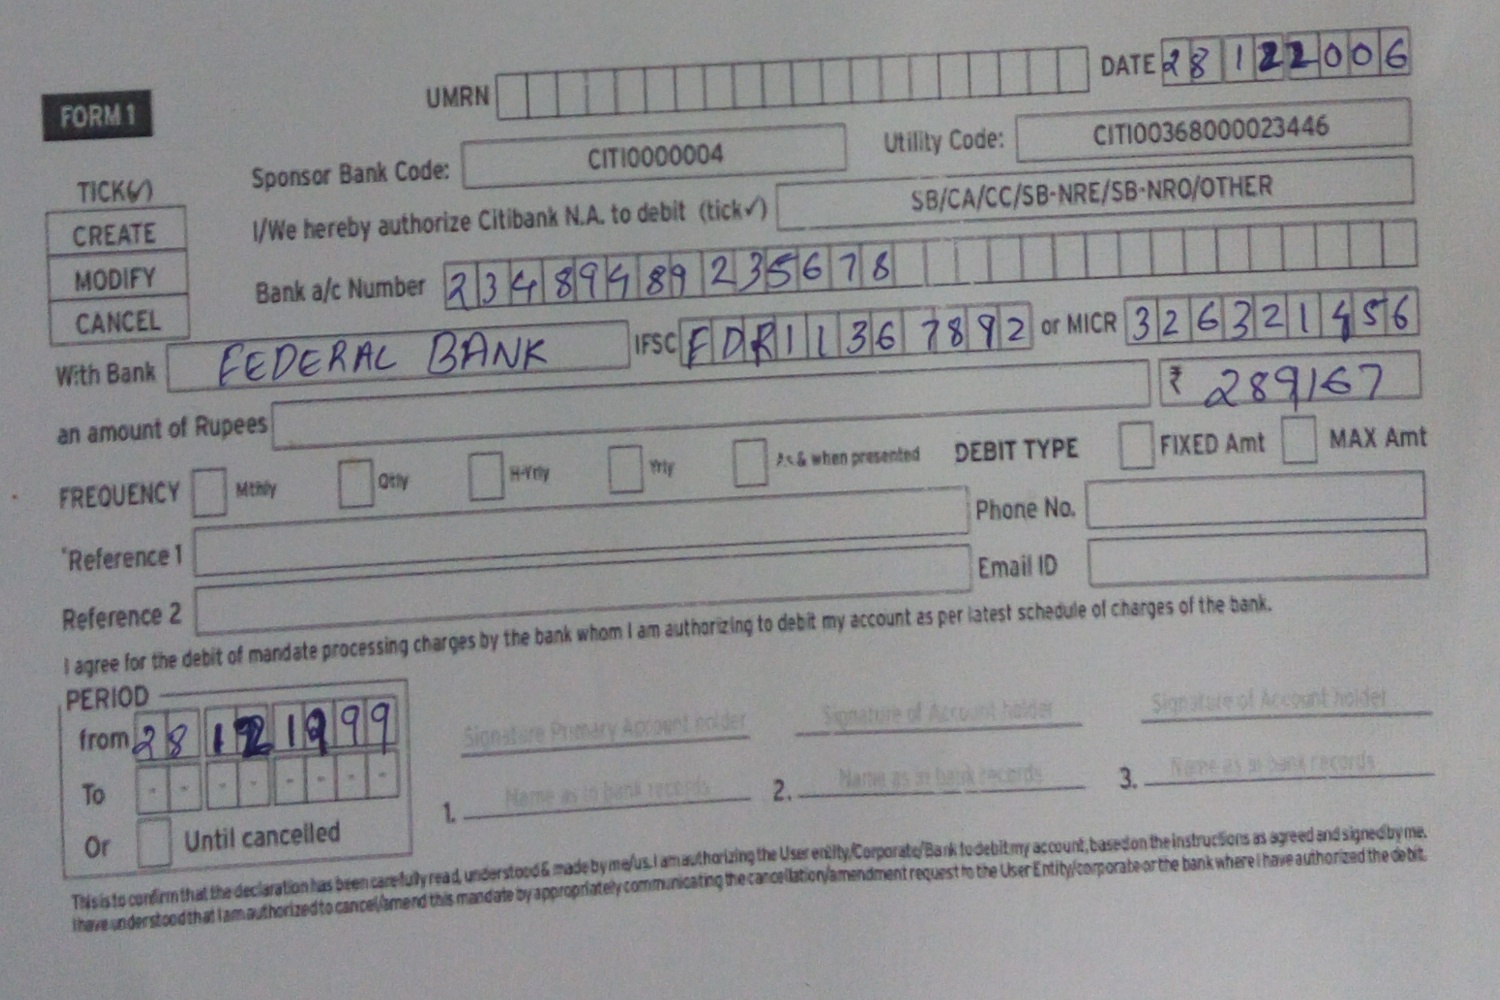 UMRN DATE 28122006
FORM 1
Sponsor Bank Code: CITI0000004 Utility Code: CITI00368000023446
TICK(✓)
I/We hereby authorize Citibank N.A. to debit (tick✓) SB/CA/CC/SB-NRE/SB-NRO/OTHER
CREATE
MODIFY
CANCEL
Bank a/c Number 23489489235678
With Bank FEDERAL BANK IFSC FDRI1367892 or MICR 326321456
an amount of Rupees ₹ 289167
FREQUENCY Mthly Qtly H-Yrly Yrly As & when presented DEBIT TYPE FIXED Amt MAX Amt
*Reference 1 Phone No.
Reference 2 Email ID
I agree for the debit of mandate processing charges by the bank whom I am authorizing to debit my account as per latest schedule of charges of the bank.
PERIOD
from 28121999
Signature Primary Account holder Signature of Account holder Signature of Account holder
To - - - - - - - -
1. Name as in bank records 2. Name as in bank records 3. Name as in bank records
Or Until cancelled
This is to confirm that the declaration has been carefully read, understood & made by me/us. I am authorizing the User entity/Corporate/Bank to debit my account, based on the instructions as agreed and signed by me.
I have understood that I am authorized to cancel/amend this mandate by appropriately communicating the cancellation/amendment request to the User Entity/corporate or the bank where I have authorized the debit.